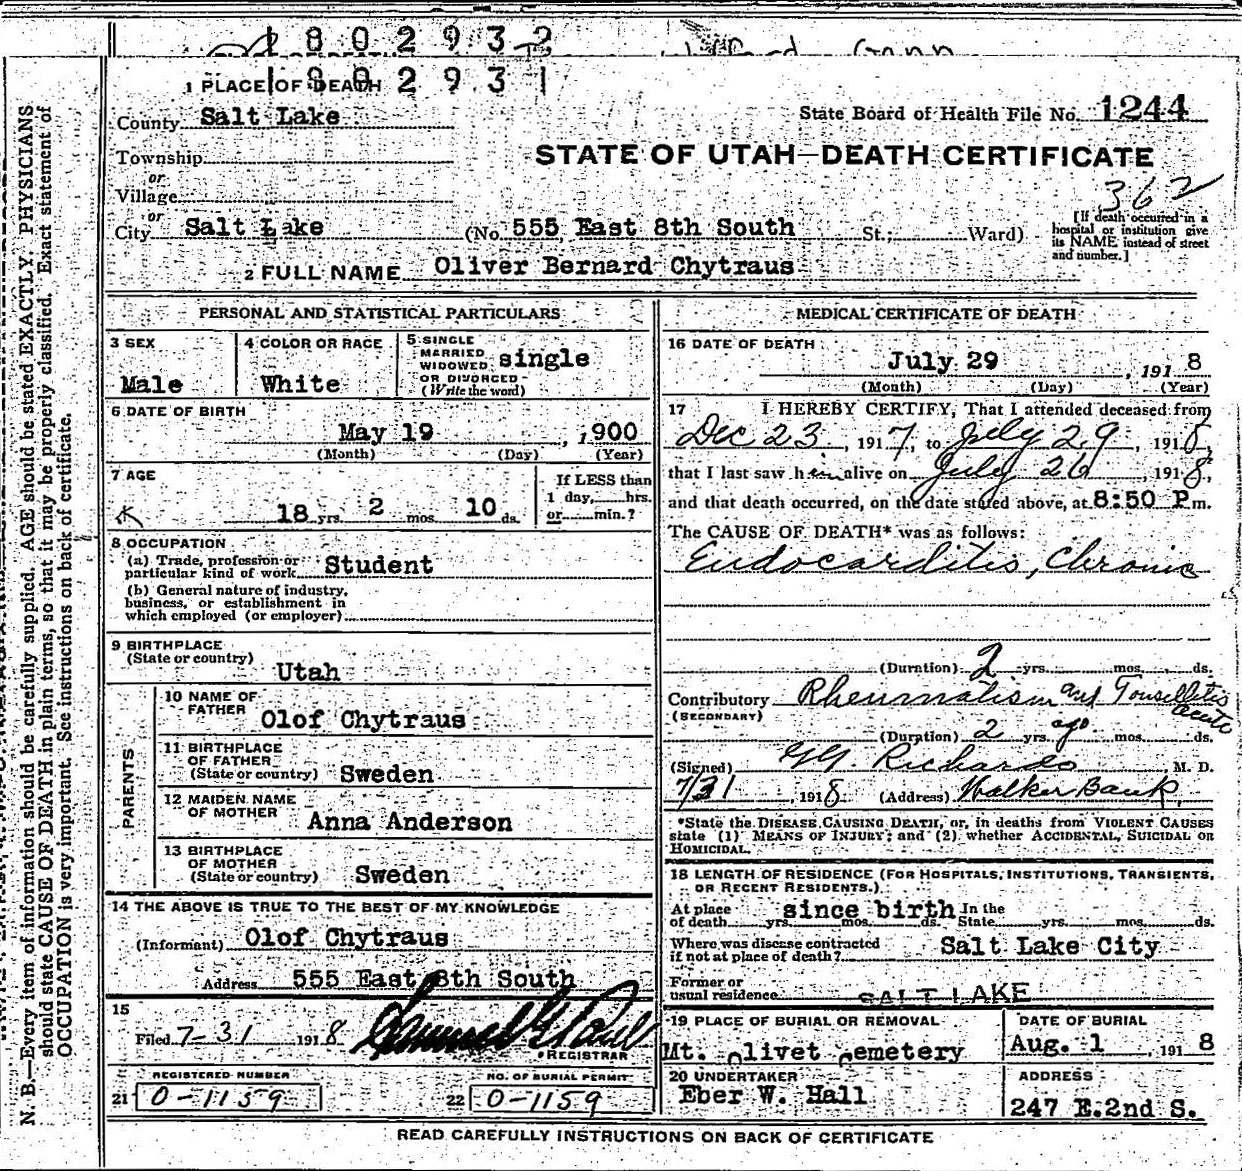 1802932
1802931
1 PLACE OF DEATH
County Salt Lake
State Board of Health File No. 1244
Township
or
Village
STATE OF UTAH—DEATH CERTIFICATE
362
or
City Salt Lake (No. 555 East 8th South St.; Ward)
[If death occurred in a
hospital or institution give
its NAME instead of street
and number.]
2 FULL NAME Oliver Bernard Chytraus
PERSONAL AND STATISTICAL PARTICULARS
3 SEX
Male
4 COLOR OR RACE
White
5 SINGLE
MARRIED
WIDOWED
OR DIVORCED
(Write the word)
single
6 DATE OF BIRTH
May 19, 1900
(Month) (Day) (Year)
7 AGE
18 yrs. 2 mos. 10 ds.
If LESS than
1 day, hrs.
or min.?
8 OCCUPATION
(a) Trade, profession or
particular kind of work Student
(b) General nature of industry,
business, or establishment in
which employed (or employer)
9 BIRTHPLACE
(State or country)
Utah
PARENTS
10 NAME OF
FATHER
Olof Chytraus
11 BIRTHPLACE
OF FATHER
(State or country) Sweden
12 MAIDEN NAME
OF MOTHER
Anna Anderson
13 BIRTHPLACE
OF MOTHER
(State or country) Sweden
14 THE ABOVE IS TRUE TO THE BEST OF MY KNOWLEDGE
(Informant) Olof Chytraus
Address 555 East 8th South
15
Filed 7-31 1918
REGISTRAR
REGISTERED NUMBER
21 0-1159
NO. OF BURIAL PERMIT
22 0-1159
MEDICAL CERTIFICATE OF DEATH
16 DATE OF DEATH
July 29, 1918
(Month) (Day) (Year)
17 I HEREBY CERTIFY, That I attended deceased from
Dec 23, 1917, to July 29, 1918,
that I last saw him alive on July 26, 1918,
and that death occurred, on the date stated above, at 8:50 P m.
The CAUSE OF DEATH* was as follows:
Endocarditis, Chronic
(Duration) 2 yrs. mos. ds.
Contributory Rheumatism and Tonsillitis
(SECONDARY) acute
(Duration) 2 yrs. ago mos. ds.
(Signed) GG Richards, M. D.
7/31, 1918 (Address) Walker Bank
*State the DISEASE CAUSING DEATH, or, in deaths from VIOLENT CAUSES
state (1) MEANS OF INJURY; and (2) whether ACCIDENTAL, SUICIDAL OR
HOMICIDAL.
18 LENGTH OF RESIDENCE (FOR HOSPITALS, INSTITUTIONS, TRANSIENTS,
OR RECENT RESIDENTS.)
At place In the
of death since birth yrs. mos. ds. State yrs. mos. ds.
Where was disease contracted
if not at place of death? Salt Lake City
Former or
usual residence SALT LAKE
19 PLACE OF BURIAL OR REMOVAL
Mt. Olivet Cemetery
DATE OF BURIAL
Aug. 1, 1918
20 UNDERTAKER
Eber W. Hall
ADDRESS
247 E.2nd S.
READ CAREFULLY INSTRUCTIONS ON BACK OF CERTIFICATE
N. B.—Every item of information should be carefully supplied. AGE should be stated EXACTLY. PHYSICIANS
should state CAUSE OF DEATH in plain terms, so that it may be properly classified. Exact statement of
OCCUPATION is very important. See instructions on back of certificate.